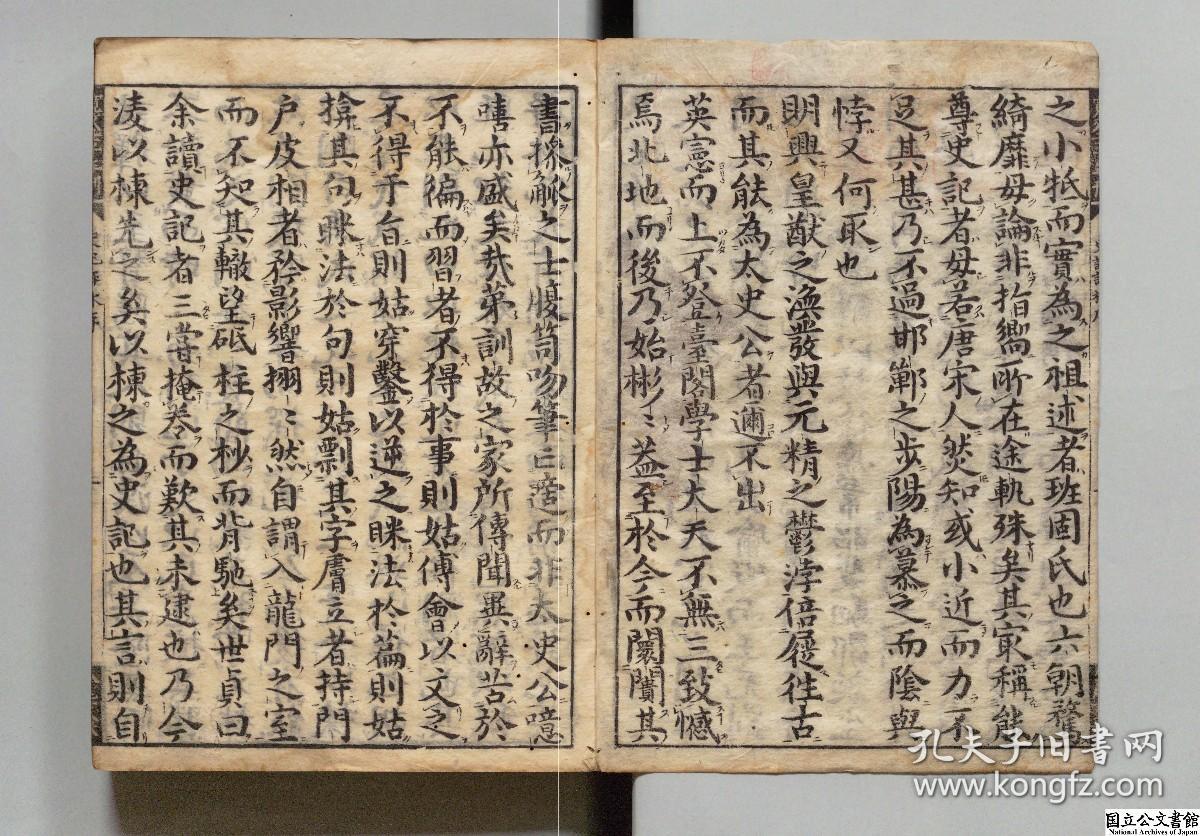 之小牴而實為之祖述者班固氏也六朝騖
綺靡毋論非指嚮所在途軌殊矣其最稱能
尊史記者毋若唐宋人然知或小近而力不
足其甚乃不過邯鄲之步陽為慕之而陰與
悖又何取也
明興皇猷之渙發與元精之鬱浡倍屣往古
而其能為太史公者邇不出
英憲而上不登臺閣學士大夫不無三致憾
焉北地而後乃始彬〻蓋至於今而闤闠其
書操觚之士腹笥吻筆亡適而非太史公噫
嘻亦盛矣哉第訓故之家所傳聞異辭苦於
不能徧而習者不得於事則姑傅會以文之
不得于旨則姑穿鑿以逆之眯法於篇則姑
揜其句眯法於句則姑剽其字膚立者持門
戶皮相者矜影響挧〻然自謂入龍門之室
而不知其轍望砥柱之杪而背馳矣世貞曰
余讀史記者三嘗掩卷而歎其未逮也乃今
淩以棟先之矣以棟之為史記也其言則自
孔夫子旧书网
www.kongfz.com
国立公文書館
National Archives of Japan